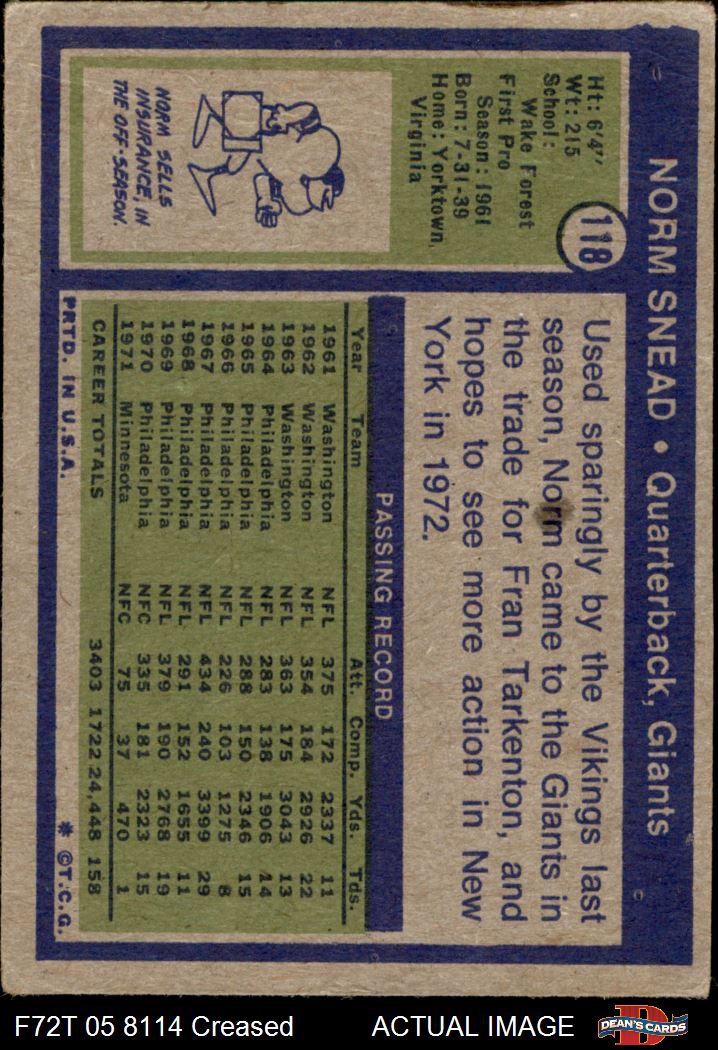 NORM SNEAD • Quarterback, Giants
118
Ht: 6'4"
Wt: 215
School:
Wake Forest
First Pro
Season: 1961
Born: 7-31-39
Home: Yorktown,
Virginia
NORM SELLS
INSURANCE, IN
THE OFF-SEASON.
Used sparingly by the Vikings last
season, Norm came to the Giants in
the trade for Fran Tarkenton, and
hopes to see more action in New
York in 1972.
PASSING RECORD
Year Team Att. Comp. Yds. Tds.
1961 Washington NFL 375 172 2337 11
1962 Washington NFL 354 184 2926 22
1963 Washington NFL 363 175 3043 13
1964 Philadelphia NFL 283 138 1906 14
1965 Philadelphia NFL 288 150 2346 15
1966 Philadelphia NFL 226 103 1275 8
1967 Philadelphia NFL 434 240 3399 29
1968 Philadelphia NFL 291 152 1655 11
1969 Philadelphia NFL 379 190 2768 19
1970 Philadelphia NFC 335 181 2323 15
1971 Minnesota NFC 75 37 470 1
CAREER TOTALS 3403 1722 24,448 158
PRTD. IN U.S.A. * ©T.C.G.
F72T 05 8114 Creased ACTUAL IMAGE
DEAN'S CARDS